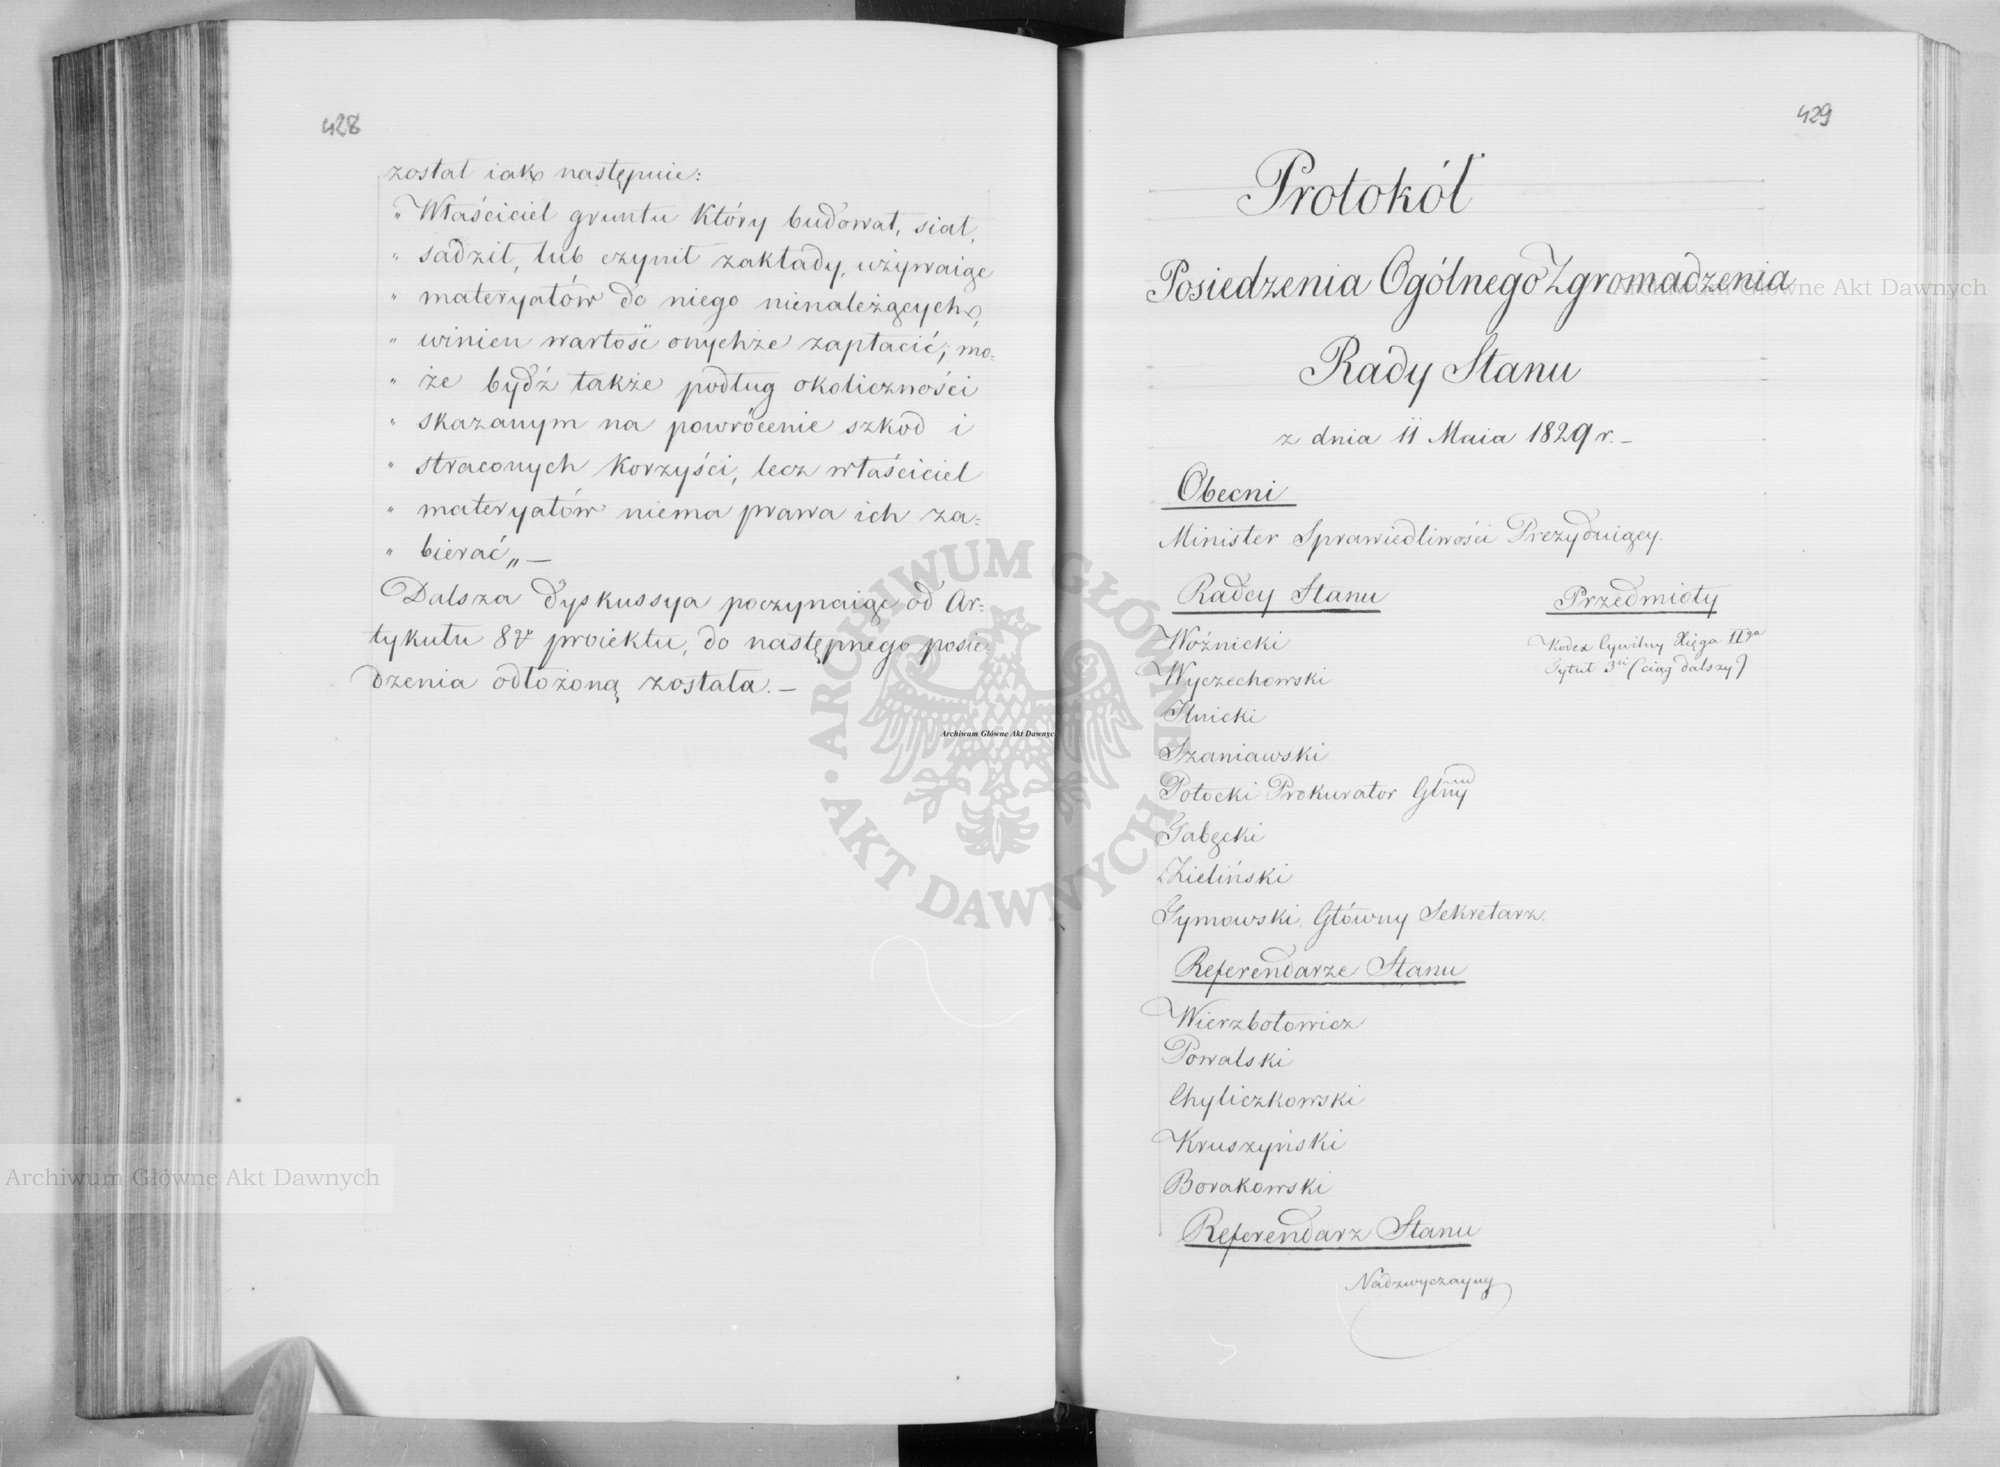 428
został iako następnie:
„ Właściciel gruntu który budował, siał,
„ sadził, lub czynił zakłady, używaiąc
„ materyałów do niego nienależących,
„ winien wartość onychże zapłacić; mo=
„ że bydź także podług okoliczności
„ skazanym na powrócenie szkód i
„ straconych korzyści, lecz właściciel
„ materyałów niema prawa ich za=
„ bierać„ —
Dalsza dyskussya poczynaiąc od Ar=
tykułu 8go proiektu, do następnego posie=
dzenia odłożoną została. —
429
Protokół
Posiedzenia Ogólnego Zgromadzenia
Rady Stanu
z dnia 11 Maia 1829 r. —
Obecni
Minister Sprawiedliwości Prezyduiący.
Radcy Stanu
Przedmioty
Woźnicki
Kodex Cywilny Xięga IIga
Tytuł 3ci (ciąg dalszy)
Wyczechowski
Ilnicki
Szaniawski
Potocki Prokurator Głny
Gabęcki
Zieliński
Tymowski Główny Sekretarz.
Referendarze Stanu
Wierzbołowicz
Powalski
Chyliczkowski
Kruszyński
Borakowski
Referendarz Stanu
Nadzwyczayny
Archiwum Główne Akt Dawnych
Archiwum Główne Akt Dawnych
Archiwum Główne Akt Dawnych
ARCHIWUM GŁÓWNE AKT DAWNYCH